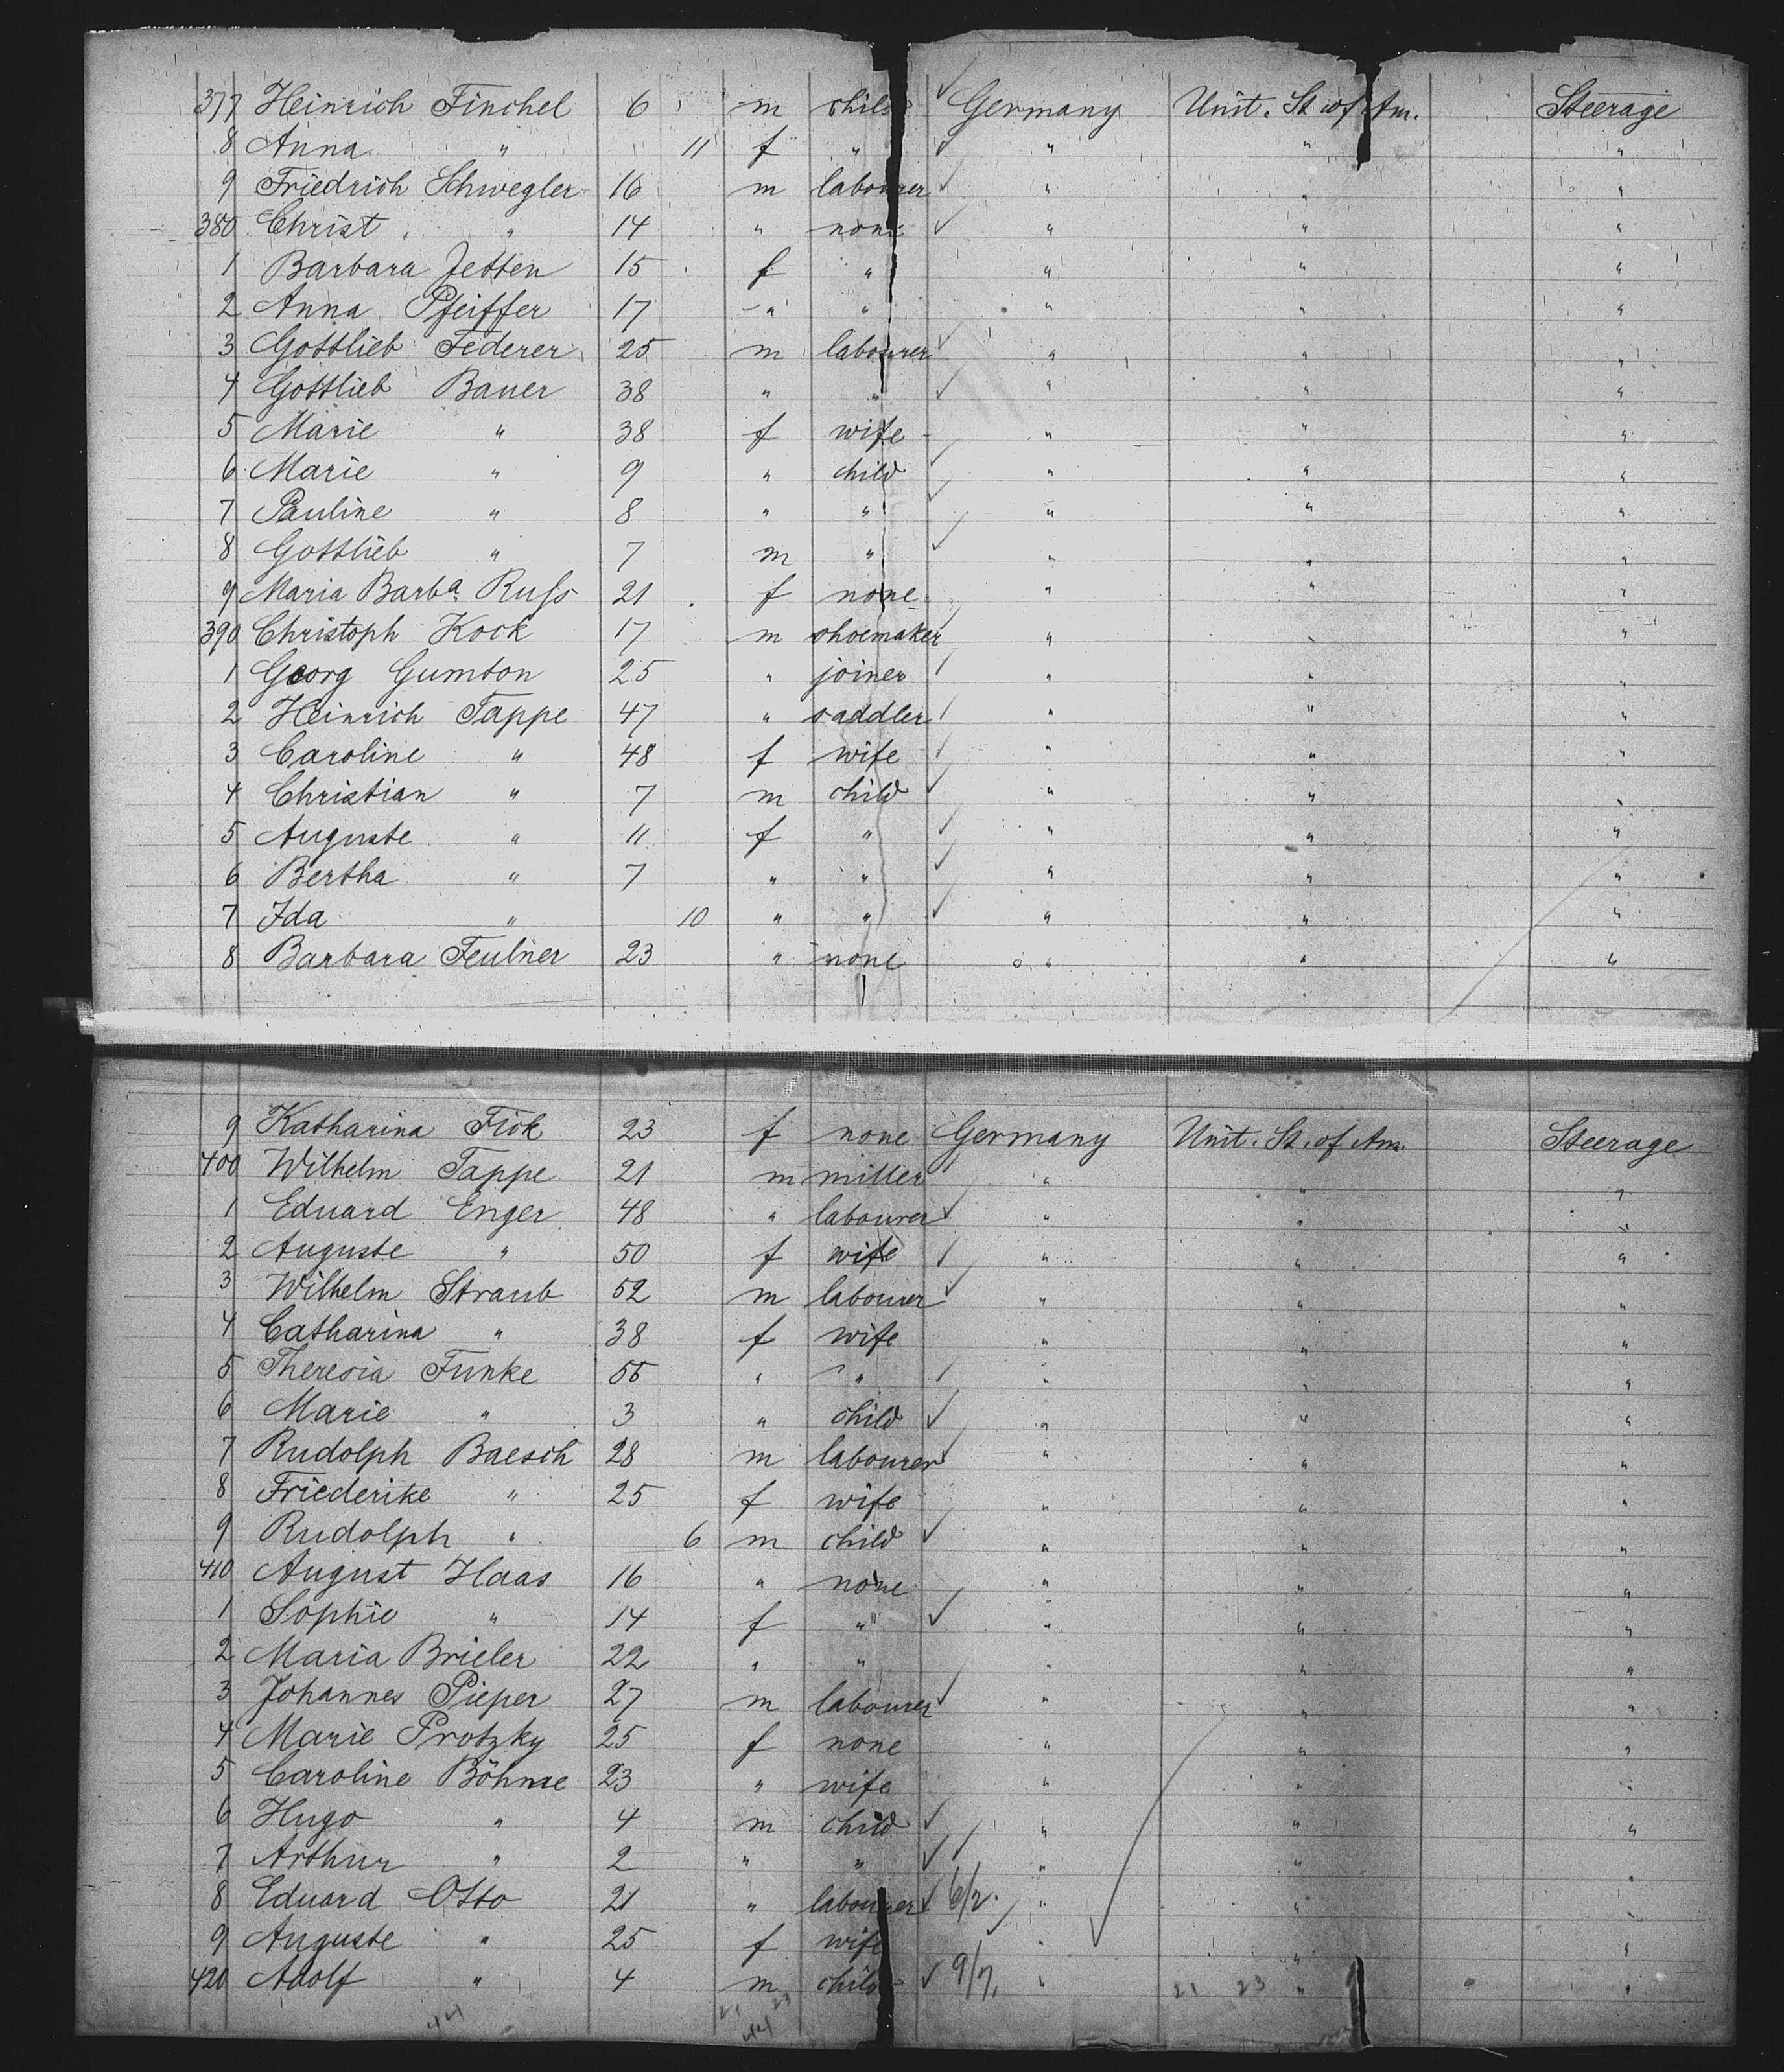 377 Heinrich Finchel 6 m child Germany Unit. St. of Am. Steerage
8 Anna " 11 f " " " "
9 Friedrich Schwegler 16 m labourer " " "
380 Christ. " 14 " none " " "
1 Barbara Jetten 15 f " " " "
2 Anna Pfeiffer 17 " " " " "
3 Gottlieb Federer 25 m labourer " " "
4 Gottlieb Bauer 38 " " " " "
5 Marie " 38 f wife " " "
6 Marie " 9 " child " " "
7 Pauline " 8 " " " " "
8 Gottlieb " 7 m " " " "
9 Maria Barba. Russ 21 f none " " "
390 Christoph Kock 17 m shoemaker " " "
1 Georg Gumton 25 " joiner " " "
2 Heinrich Tappe 47 " saddler " " "
3 Caroline " 48 f wife " " "
4 Christian " 7 m child " " "
5 Auguste " 11 f " " " "
6 Bertha " 7 " " " " "
7 Ida " 10 " " " " "
8 Barbara Feulner 23 " none " " "
9 Katharina Fick 23 f none Germany Unit. St. of Am. Steerage
400 Wilhelm Tappe 21 m miller " " "
1 Eduard Enger 48 " labourer " " "
2 Auguste " 50 f wife " " "
3 Wilhelm Straub 52 m labourer " " "
4 Catharina " 38 f wife " " "
5 Theresia Funke 55 " " " " "
6 Marie " 3 " child " " "
7 Rudolph Baesch 28 m labourer " " "
8 Friederike " 25 f wife " " "
9 Rudolph " 6 m child " " "
410 August Haas 16 " none " " "
1 Sophie " 14 f " " " "
2 Maria Brieler 22 " " " " "
3 Johannes Pieper 27 m labourer " " "
4 Marie Protzky 25 f none " " "
5 Caroline Böhme 23 " wife " " "
6 Hugo " 4 m child " " "
7 Arthur " 2 " " " " "
8 Eduard Otto 21 " labourer 6/2. " " "
9 Auguste " 25 f wife " " "
420 Adolf " 4 m child 9/7, " 21 23 " "
44 21 23
44